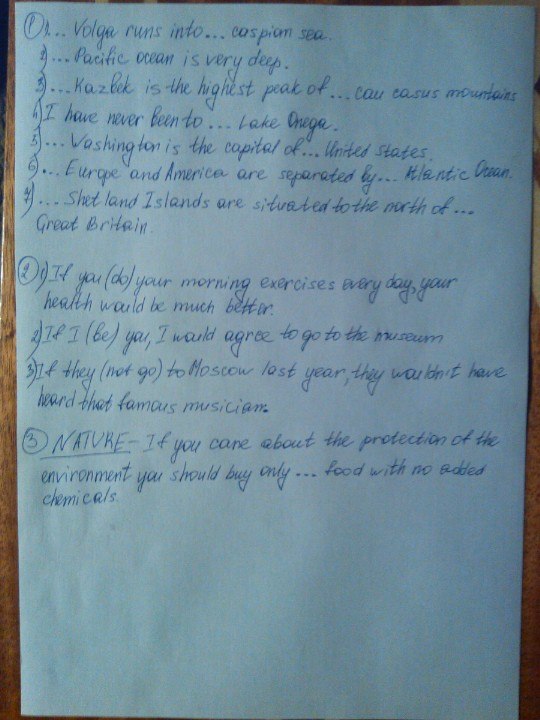 ① 1... Volga runs into... caspian sea.
2)... Pacific ocean is very deep.
3)... Kazbek is the highest peak of ... cau casus mountains
4) I have never been to ... Lake Onega.
5)... Washington is the capital of ... United States.
6)... Europe and America are separated by ... Atlantic Ocean.
7)... Shetland Islands are situated to the north of ...
Great Britain.
② 1) If you (do) your morning exercises every day, your
health would be much better.
2) If I (be) you, I would agree to go to the museum
3) If they (not go) to Moscow last year, they wouldn't have
heard that famous musician.
③ NATURE - If you care about the protection of the
environment you should buy only ... food with no added
chemicals.